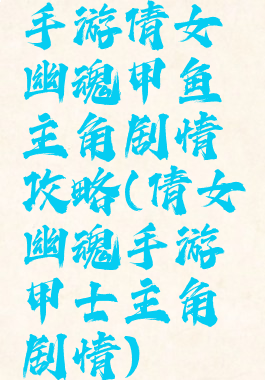 手游倩女
幽魂甲鱼
主角剧情
攻略(倩女
幽魂手游
甲士主角
剧情)